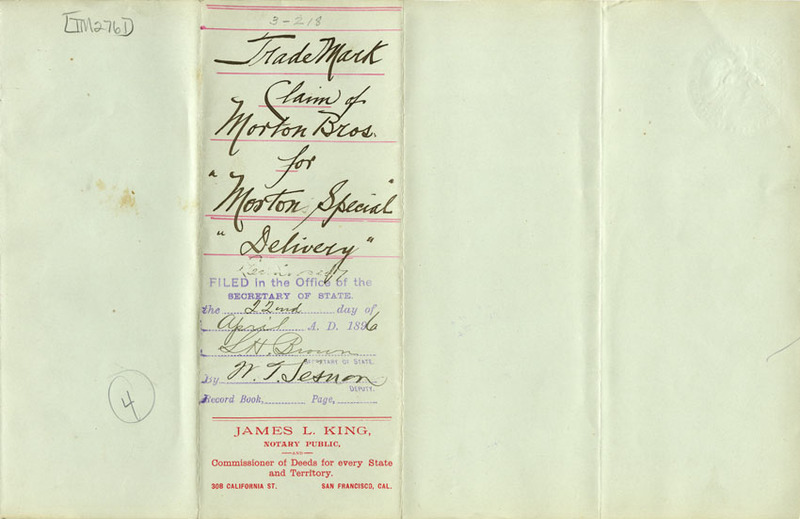 [TM276D]
3-218
Trade Mark
Claim of
Morton Bros.
for
"Morton Special"
"Delivery"
FILED in the Office of the
SECRETARY OF STATE.
the 22nd day of
April A. D. 1896
L.H. Brown
SECRETARY OF STATE.
By W. T. Sesnon
DEPUTY.
Record Book, Page,
4
JAMES L. KING,
NOTARY PUBLIC,
AND
Commissioner of Deeds for every State
and Territory.
308 CALIFORNIA ST. SAN FRANCISCO, CAL.